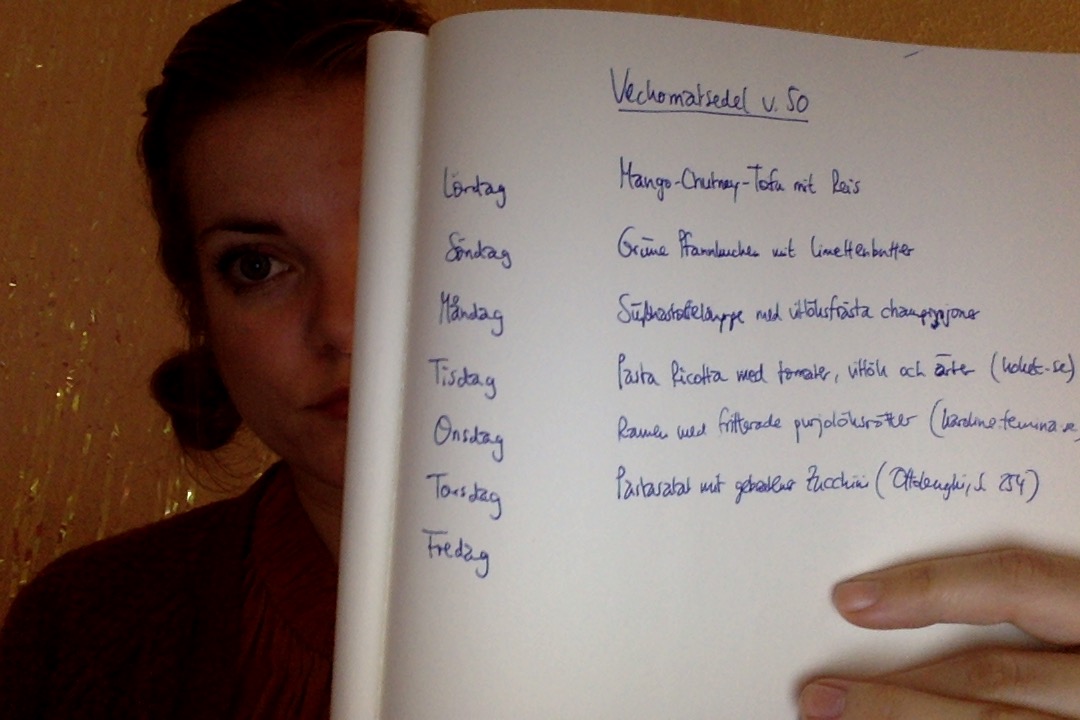 Veckomatsedel v. 50
Lördag Mango-Chutney-Tofu mit Reis
Söndag Grüne Pfannkuchen mit Limettenbutter
Måndag Süßkartoffelsuppe med vitlöksfrästa champinjoner
Tisdag Pasta Ricotta med tomater, vitlök och ärter (koket.se)
Onsdag Ramen med friterade purjolöksrötter (karoline.femina.se
Torsdag Pastasalat mit gebratener Zucchini (Ottolenghi, S. 254)
Fredag